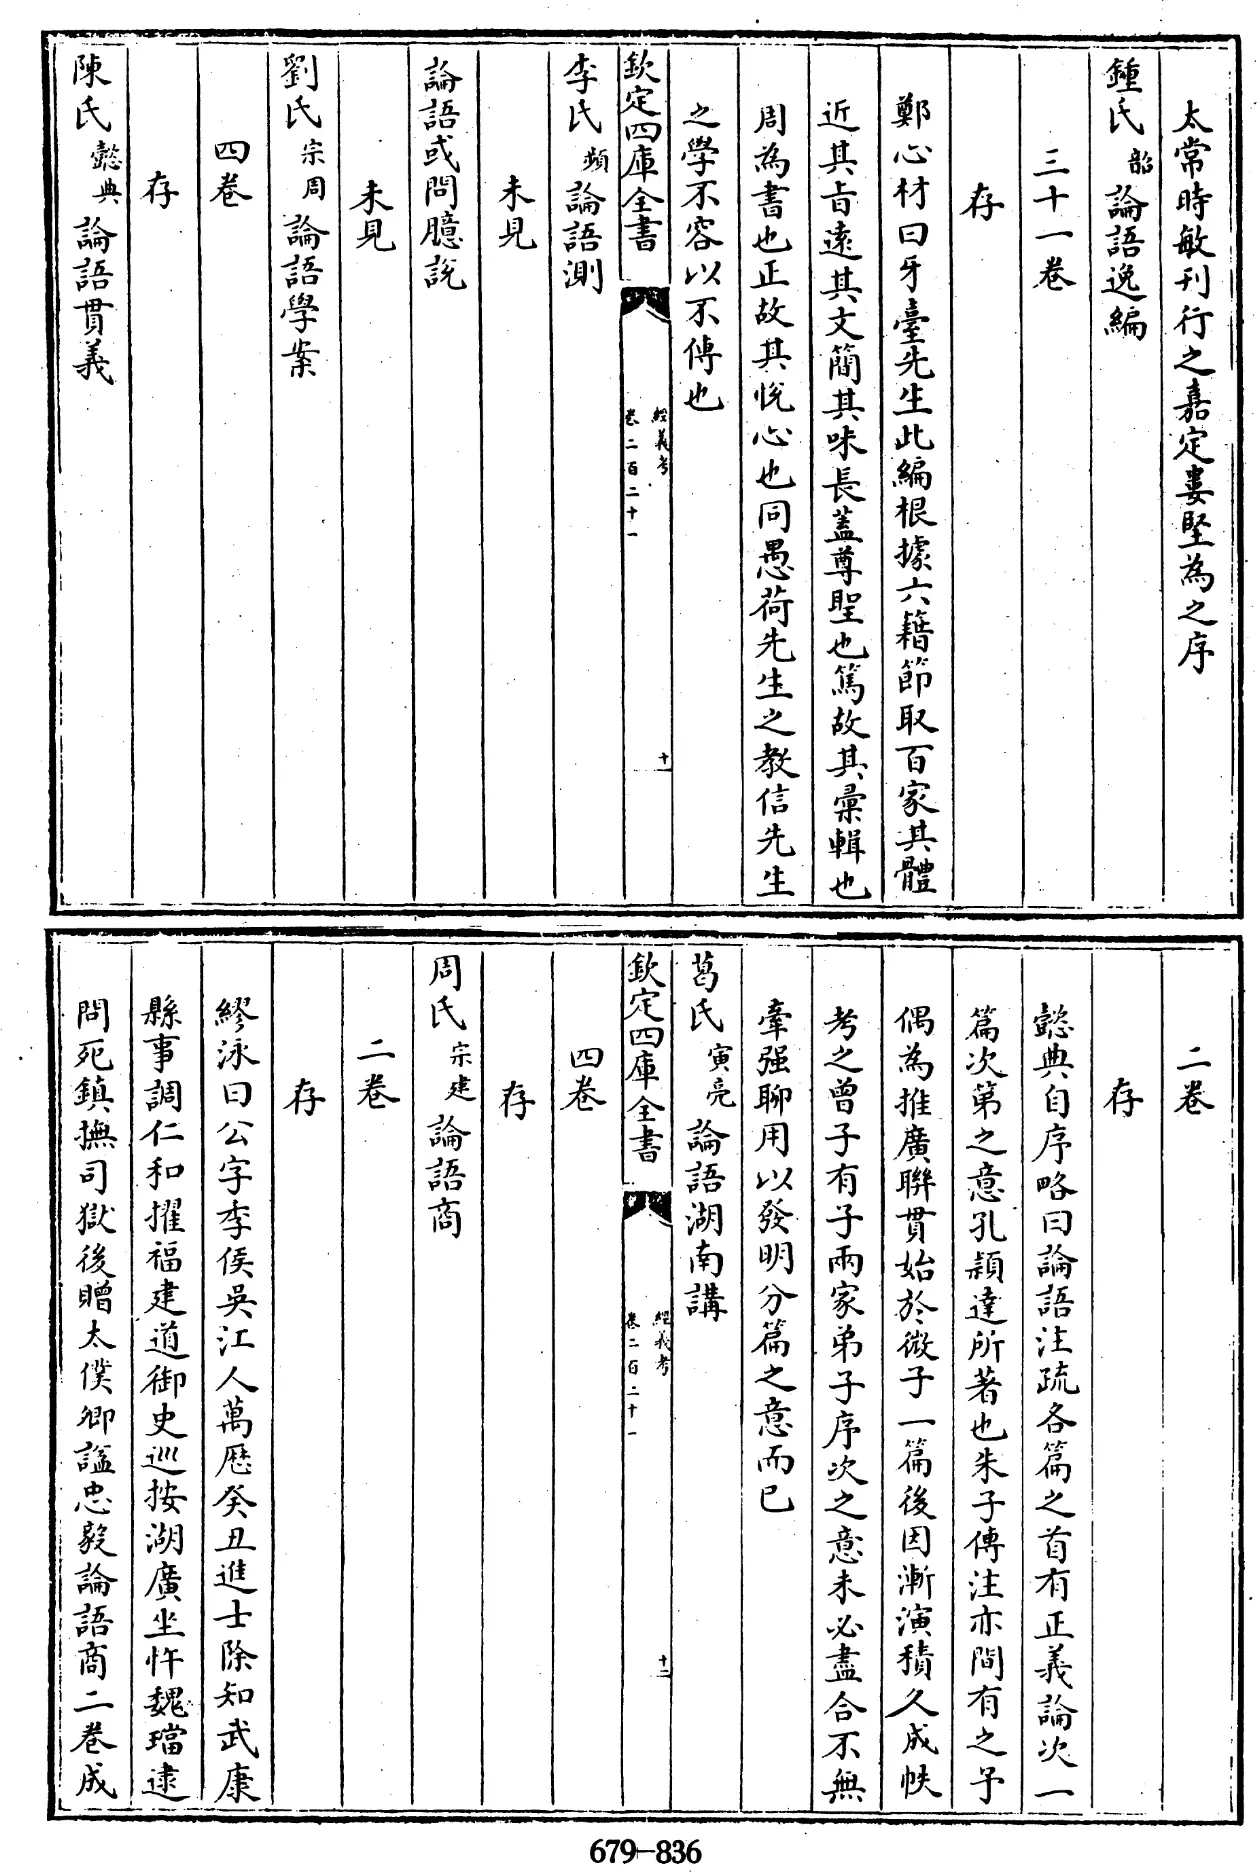 太常時敏刊行之嘉定婁堅為之序
鍾氏韶論語逸編
三十一卷
存
鄭心材曰牙臺先生此編根據六籍節取百家其體
近其旨遠其文簡其味長蓋尊聖也篤故其彙輯也
周為書也正故其悅心也同愚荷先生之教信先生
之學不容以不傳也
欽定四庫全書
經義考
卷二百二十一
十一
李氏頻論語測
未見
論語或問臆說
未見
劉氏宗周論語學案
四卷
存
陳氏懿典論語貫義
二卷
存
懿典自序略曰論語注疏各篇之首有正義論次一
篇次第之意孔穎達所著也朱子傳注亦間有之予
偶為推廣聯貫始於微子一篇後因漸演積久成帙
考之曾子有子兩家弟子序次之意未必盡合不無
牽强聊用以發明分篇之意而已
葛氏寅亮論語湖南講
欽定四庫全書
經義考
卷二百二十一
十二
四卷
存
周氏宗建論語商
二卷
存
繆泳曰公字季侯吳江人萬歷癸丑進士除知武康
縣事調仁和擢福建道御史巡按湖廣坐忤魏璫逮
問死鎮撫司獄後贈太僕卿諡忠毅論語商二卷成
679-836